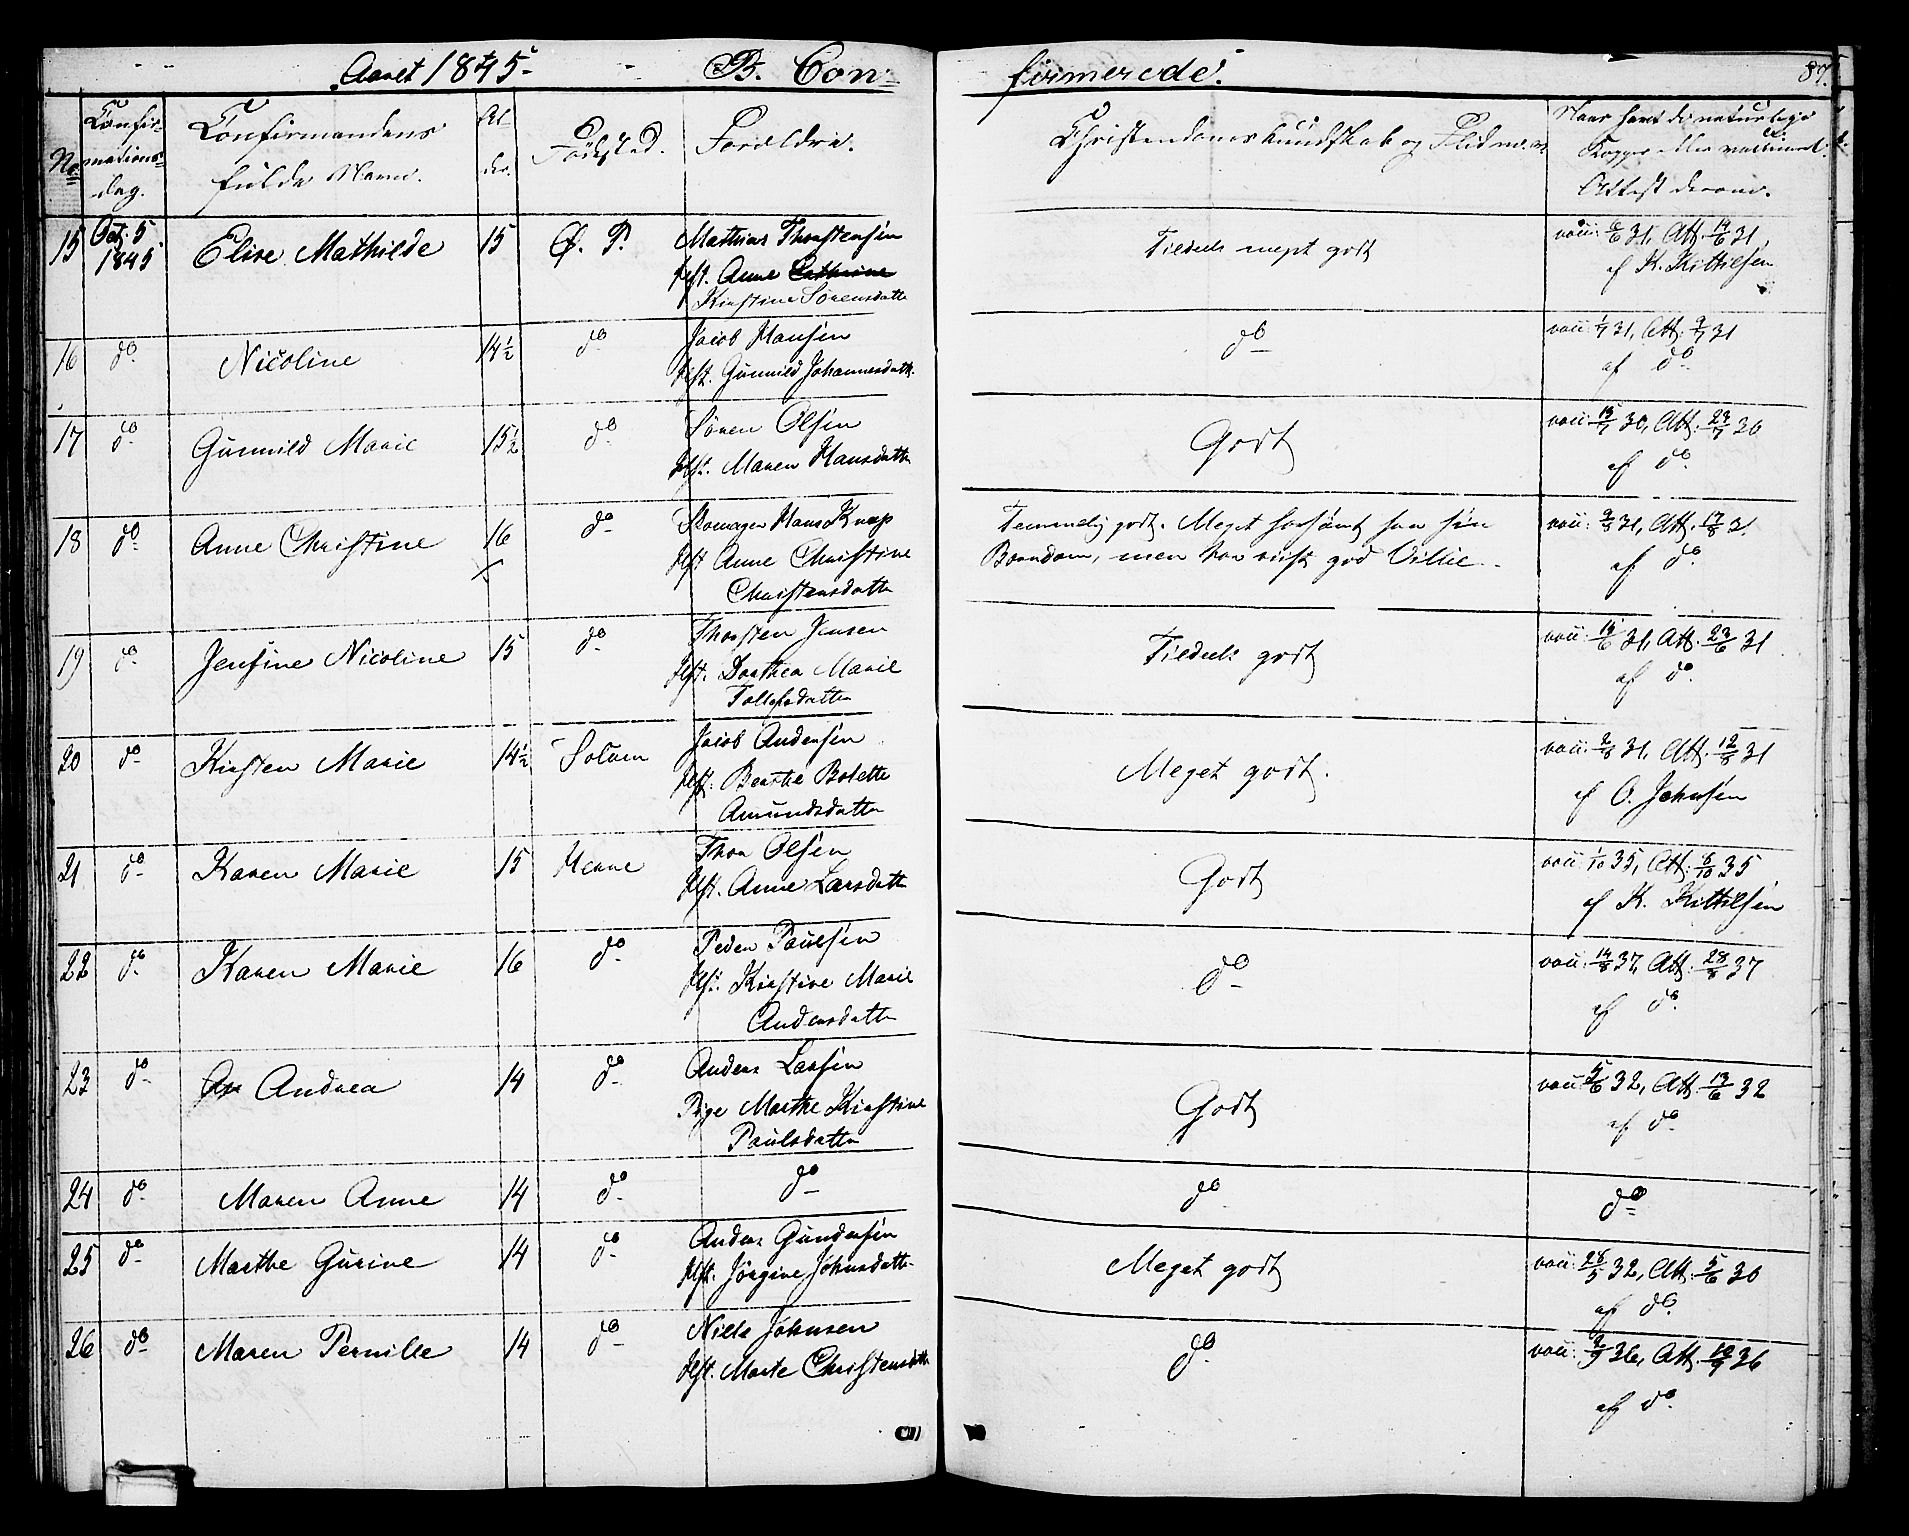 Aaret 1845. B. Con-
firmerede.
87.
No
Confir-
mations-
dag.
Confirmandens
fulde Navn.
Al-
der.
Födested.
Forældre.
Christendomskundskab og Flid m. v.
Naar havt de naturlige
Kopper eller vaccineret.
Attest derom.
15 Oct. 5 1845 Elise Mathilde 15 Ø. P.
Mathias Thorstensen
Hst. Anne Cathrine
Kirstine Sörensdatter
Tildeels meget godt
vacc: 6/6 31, Att. 14/6 31,
af K. Kittilsen
16 do Nicoline 14½ do
Jacob Hansen
Hst. Gunnild Johannesdatt.
do
vacc: 1/7 31, Att. 9/7 31
af do
17 do Gunnild Marie 15½ do
Sören Olsen
Hst. Maren Hansdatter
Godt
vacc: 15/7 30, Att. 23/7 30
af do
18 do Anne Christine 16 do
Hans Knap
Hst Anne Christine
Christensdatter
Temmelig godt. Meget forsömt fra sin
Barndom, men har viist god Villie.
vacc: 9/8 31, Att. 17/8 31
af do
19 do Jensine Nicoline 15 do
Thorsten Jensen
Hst. Dorthea Marie
Tollefsdatter
Tildeels godt
vacc: 15/6 31, Att. 23/6 31
af do
20 do Kirsten Marie 14½ Solum
Jacob Andersen
Hst. Berthe Bolette
Amundsdatter
Meget godt.
vacc: 2/8 31, Att. 12/8 31
af O. Johnsen
21 do Karen Marie 15 Herre
Thor Olsen
Hst. Anne Larsdatter
Godt
vacc: 1/10 35, Att. 8/10 35
af K. Kittilsen
22 do Karen Marie 16 do
Peder Paulsen
Hst. Kirstine Marie
Andersdatter
do
vacc: 14/8 37, Att. 28/8 37
af do
23 do Andrea 14 do
Anders Larsen
Pige Marthe Kirstine
Paulsdatter
Godt
vacc: 5/6 32, Att. 13/6 32
af do
24 do Maren Anne 14 do do do do
25 do Marthe Gurine 14 do
Anders Gundersen
Hst. Jörgine Johnsdatter
Meget godt
vacc: 28/5 32, Att. 5/6 30
af do
26 do Maren Pernille 14 do
Niels Johnsen
Hst. Marte Christensdatter
do
vacc: 2/9 36, Att. 10/9 36
af do